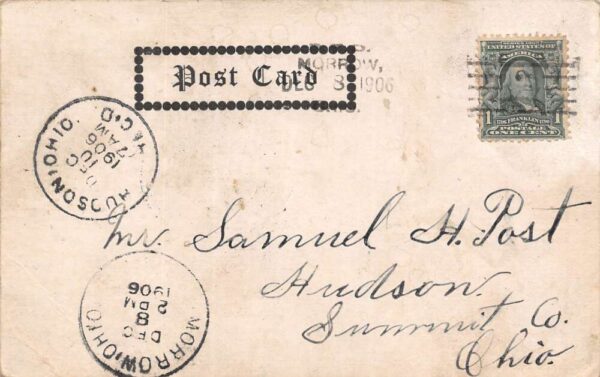 MORROW,
DEC 8 1906
Post Card
UNITED STATES OF AMERICA
FRANKLIN
1 1
POSTAGE
ONE CENT
HUDSON OHIO
REC'D.
DEC
10
7 AM
1906
Mr. Samuel H. Post
Hudson
Summit Co.
Ohio.
MORROW OHIO
DEC
8
2 PM
1906